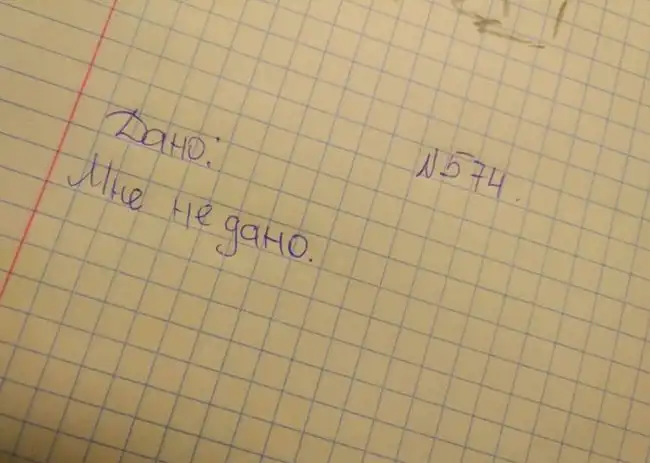 N574.
Дано:
Мне не дано.